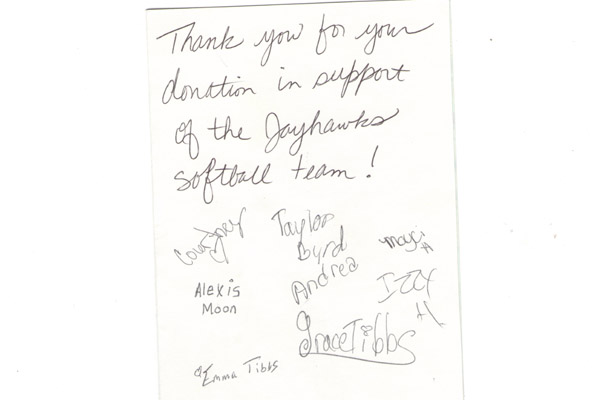 Thank you for your
donation in support
of the Jayhawks
softball team!
Courtney
Taylor
Byrd
Alexis
Moon
Andrea
Izzy
H
Grace Tibbs
Emma Tibbs